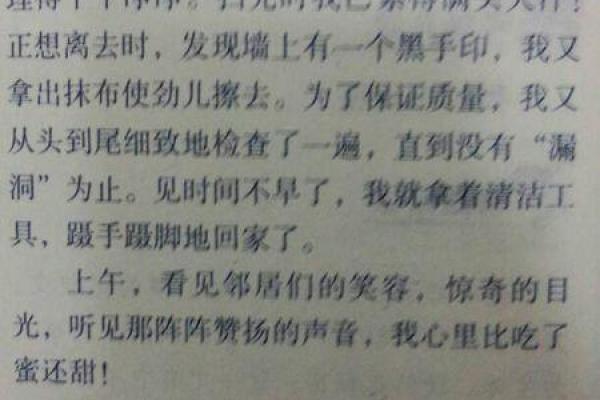 理得干干净净。扫完时我已累得满头大汗！
正想离去时，发现墙上有一个黑手印，我又
拿出抹布使劲儿擦去。为了保证质量，我又
从头到尾细致地检查了一遍，直到没有“漏
洞”为止。见时间不早了，我就拿着清洁工
具，蹑手蹑脚地回家了。
上午，看见邻居们的笑容，惊奇的目
光，听见那阵阵赞扬的声音，我心里比吃了
蜜还甜！